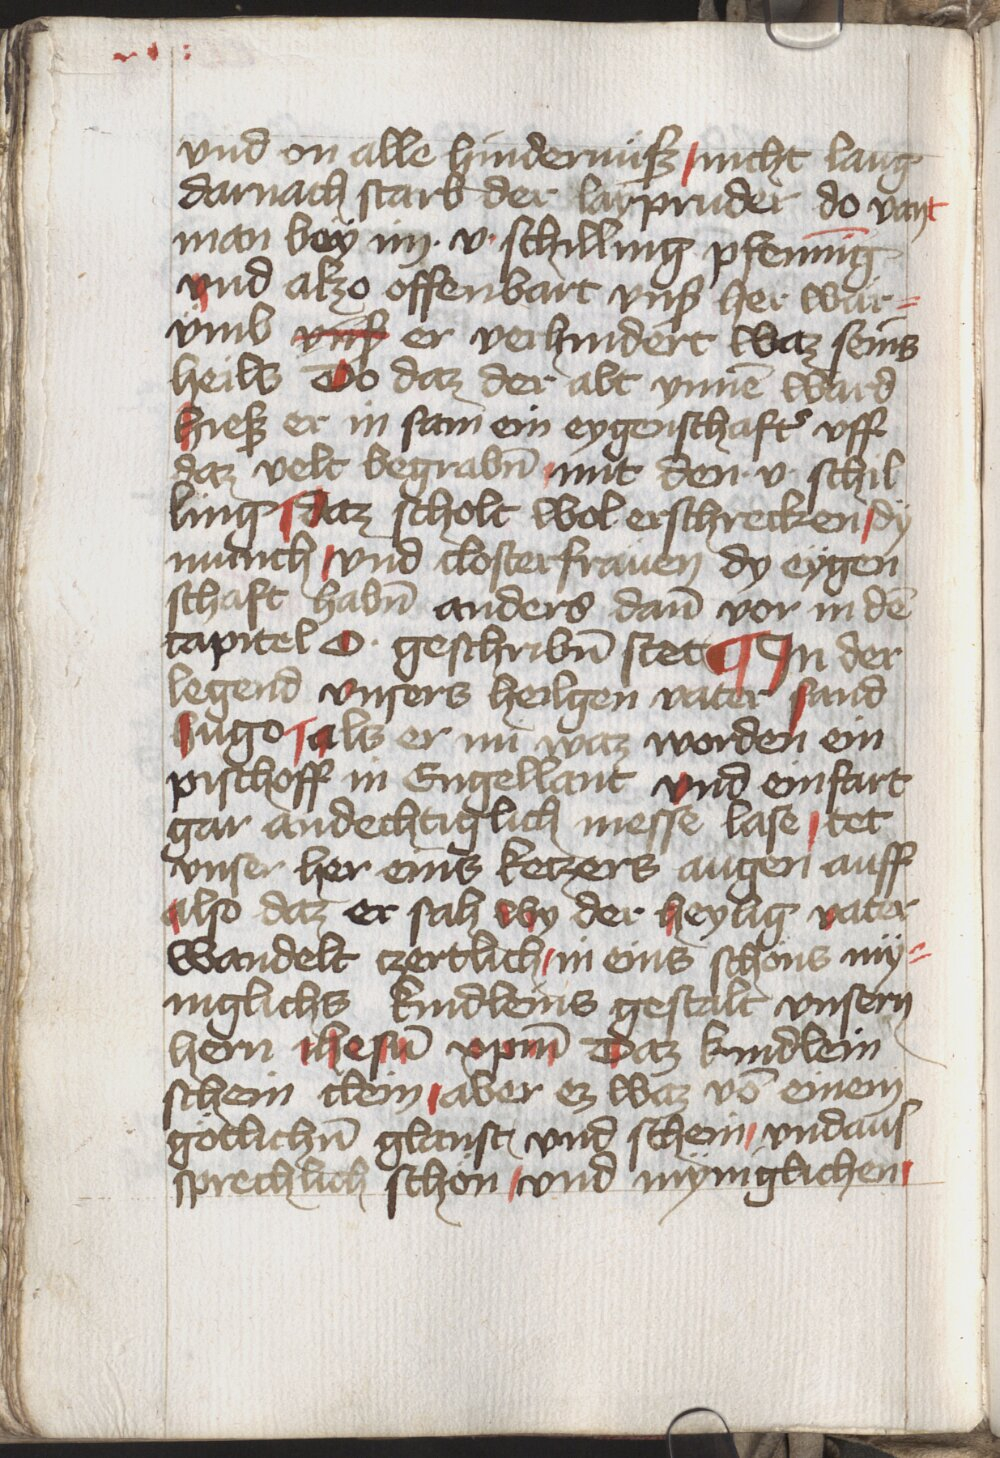 vnd on alle hindernuͤß / nicht lang
darnach starb der laypruder do vant
man bey im · v · schilling pfenning
vnd alzo offenbart vnß her war=
vmb vnß er verhindert waz seins
heils Do daz der abt ynnē ward
hieß er in sam ein eygenschafter vff
daz velt begrabn̄ / mit den · v · schil
ling ¶ daz scholt wol erschrecken / dy
munch / vnd closterfrawen dy eygen
schaft habn̄ anders dan̄ vor in dē
capitel O · geschribn̄ stet ¶ In der
legend vnsers heilgen vater sand
hugo ¶ als er nu waz worden ein
pischoff in Engellant vnd einfart
gar andechtiglich messe lase / tet
vnser her eins ketzers augen auff
also daz er sah wy der heylig vater
wandelt czertlich / in eins schöns my=
niglichs kindleins gestalt vnsern
hern ihesū xpm̄ Daz kindlein
schein clein / aber ez waz vō einem
götlichn̄ glanst vnd schein / vndaus
sprechlich schön / vnd myniglichen /